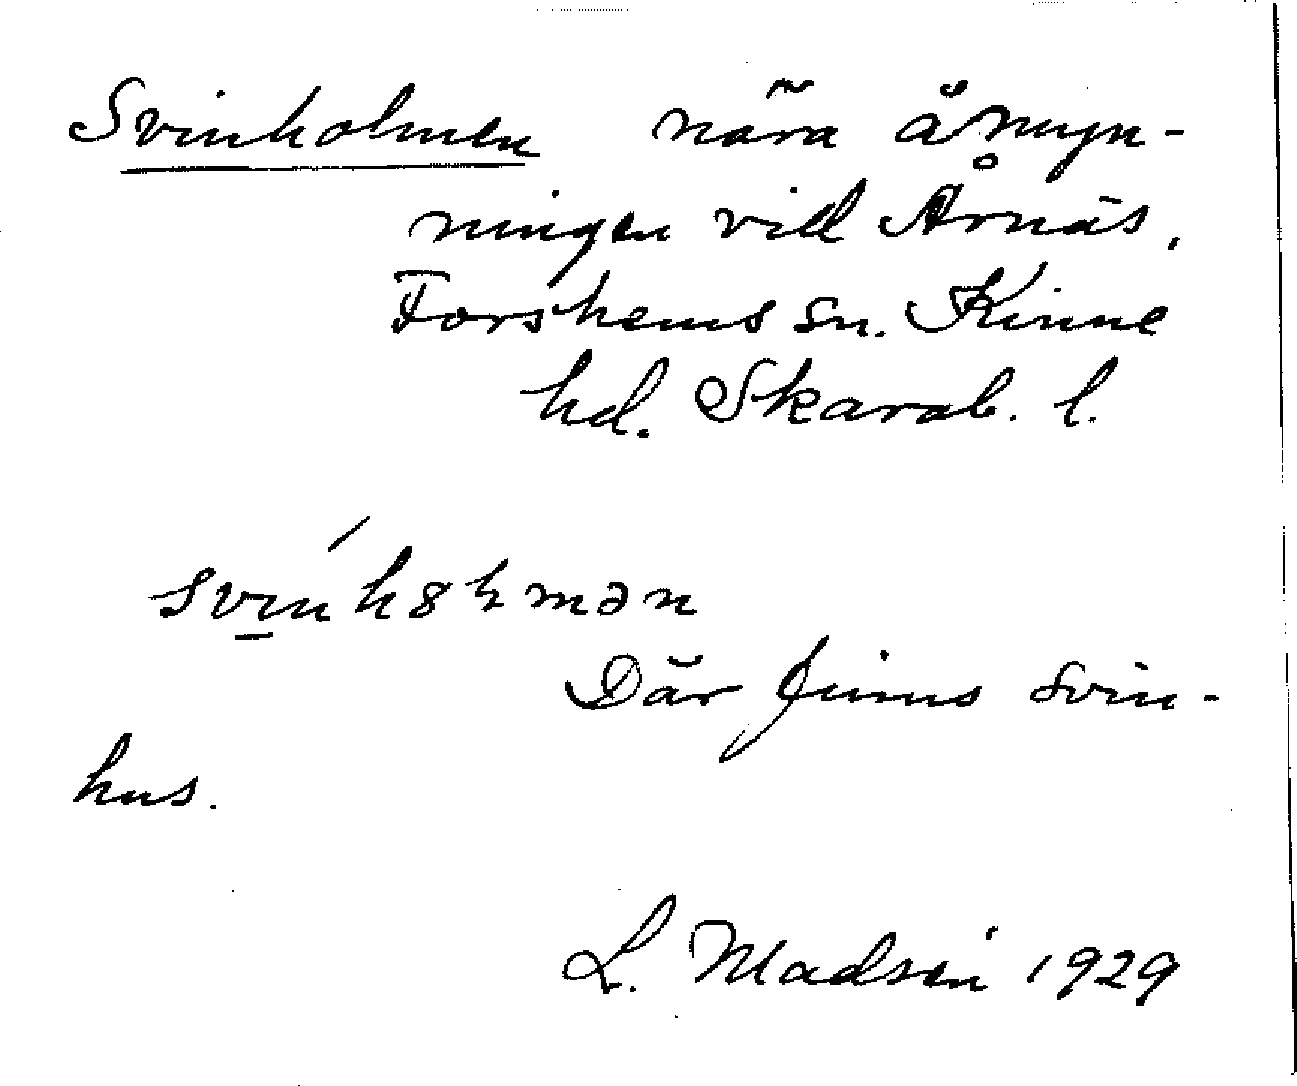 Svinholmen nära åmyn-
ningen vill Årnäs,
Forshems sn. Kinne
hd. Skarab. l.
Där finns svin-
hus.
L. Madsén 1929